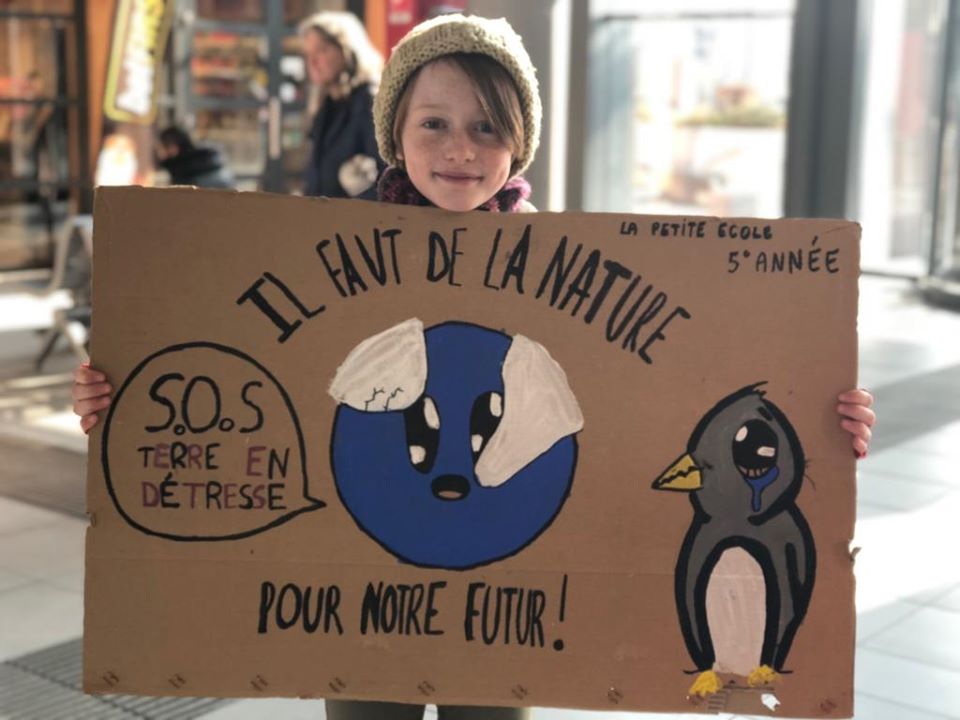 LA PETITE ECOLE
5° ANNÉE
IL FAUT DE LA NATURE
S.O.S
TERRE EN
DÉTRESSE
POUR NOTRE FUTUR!